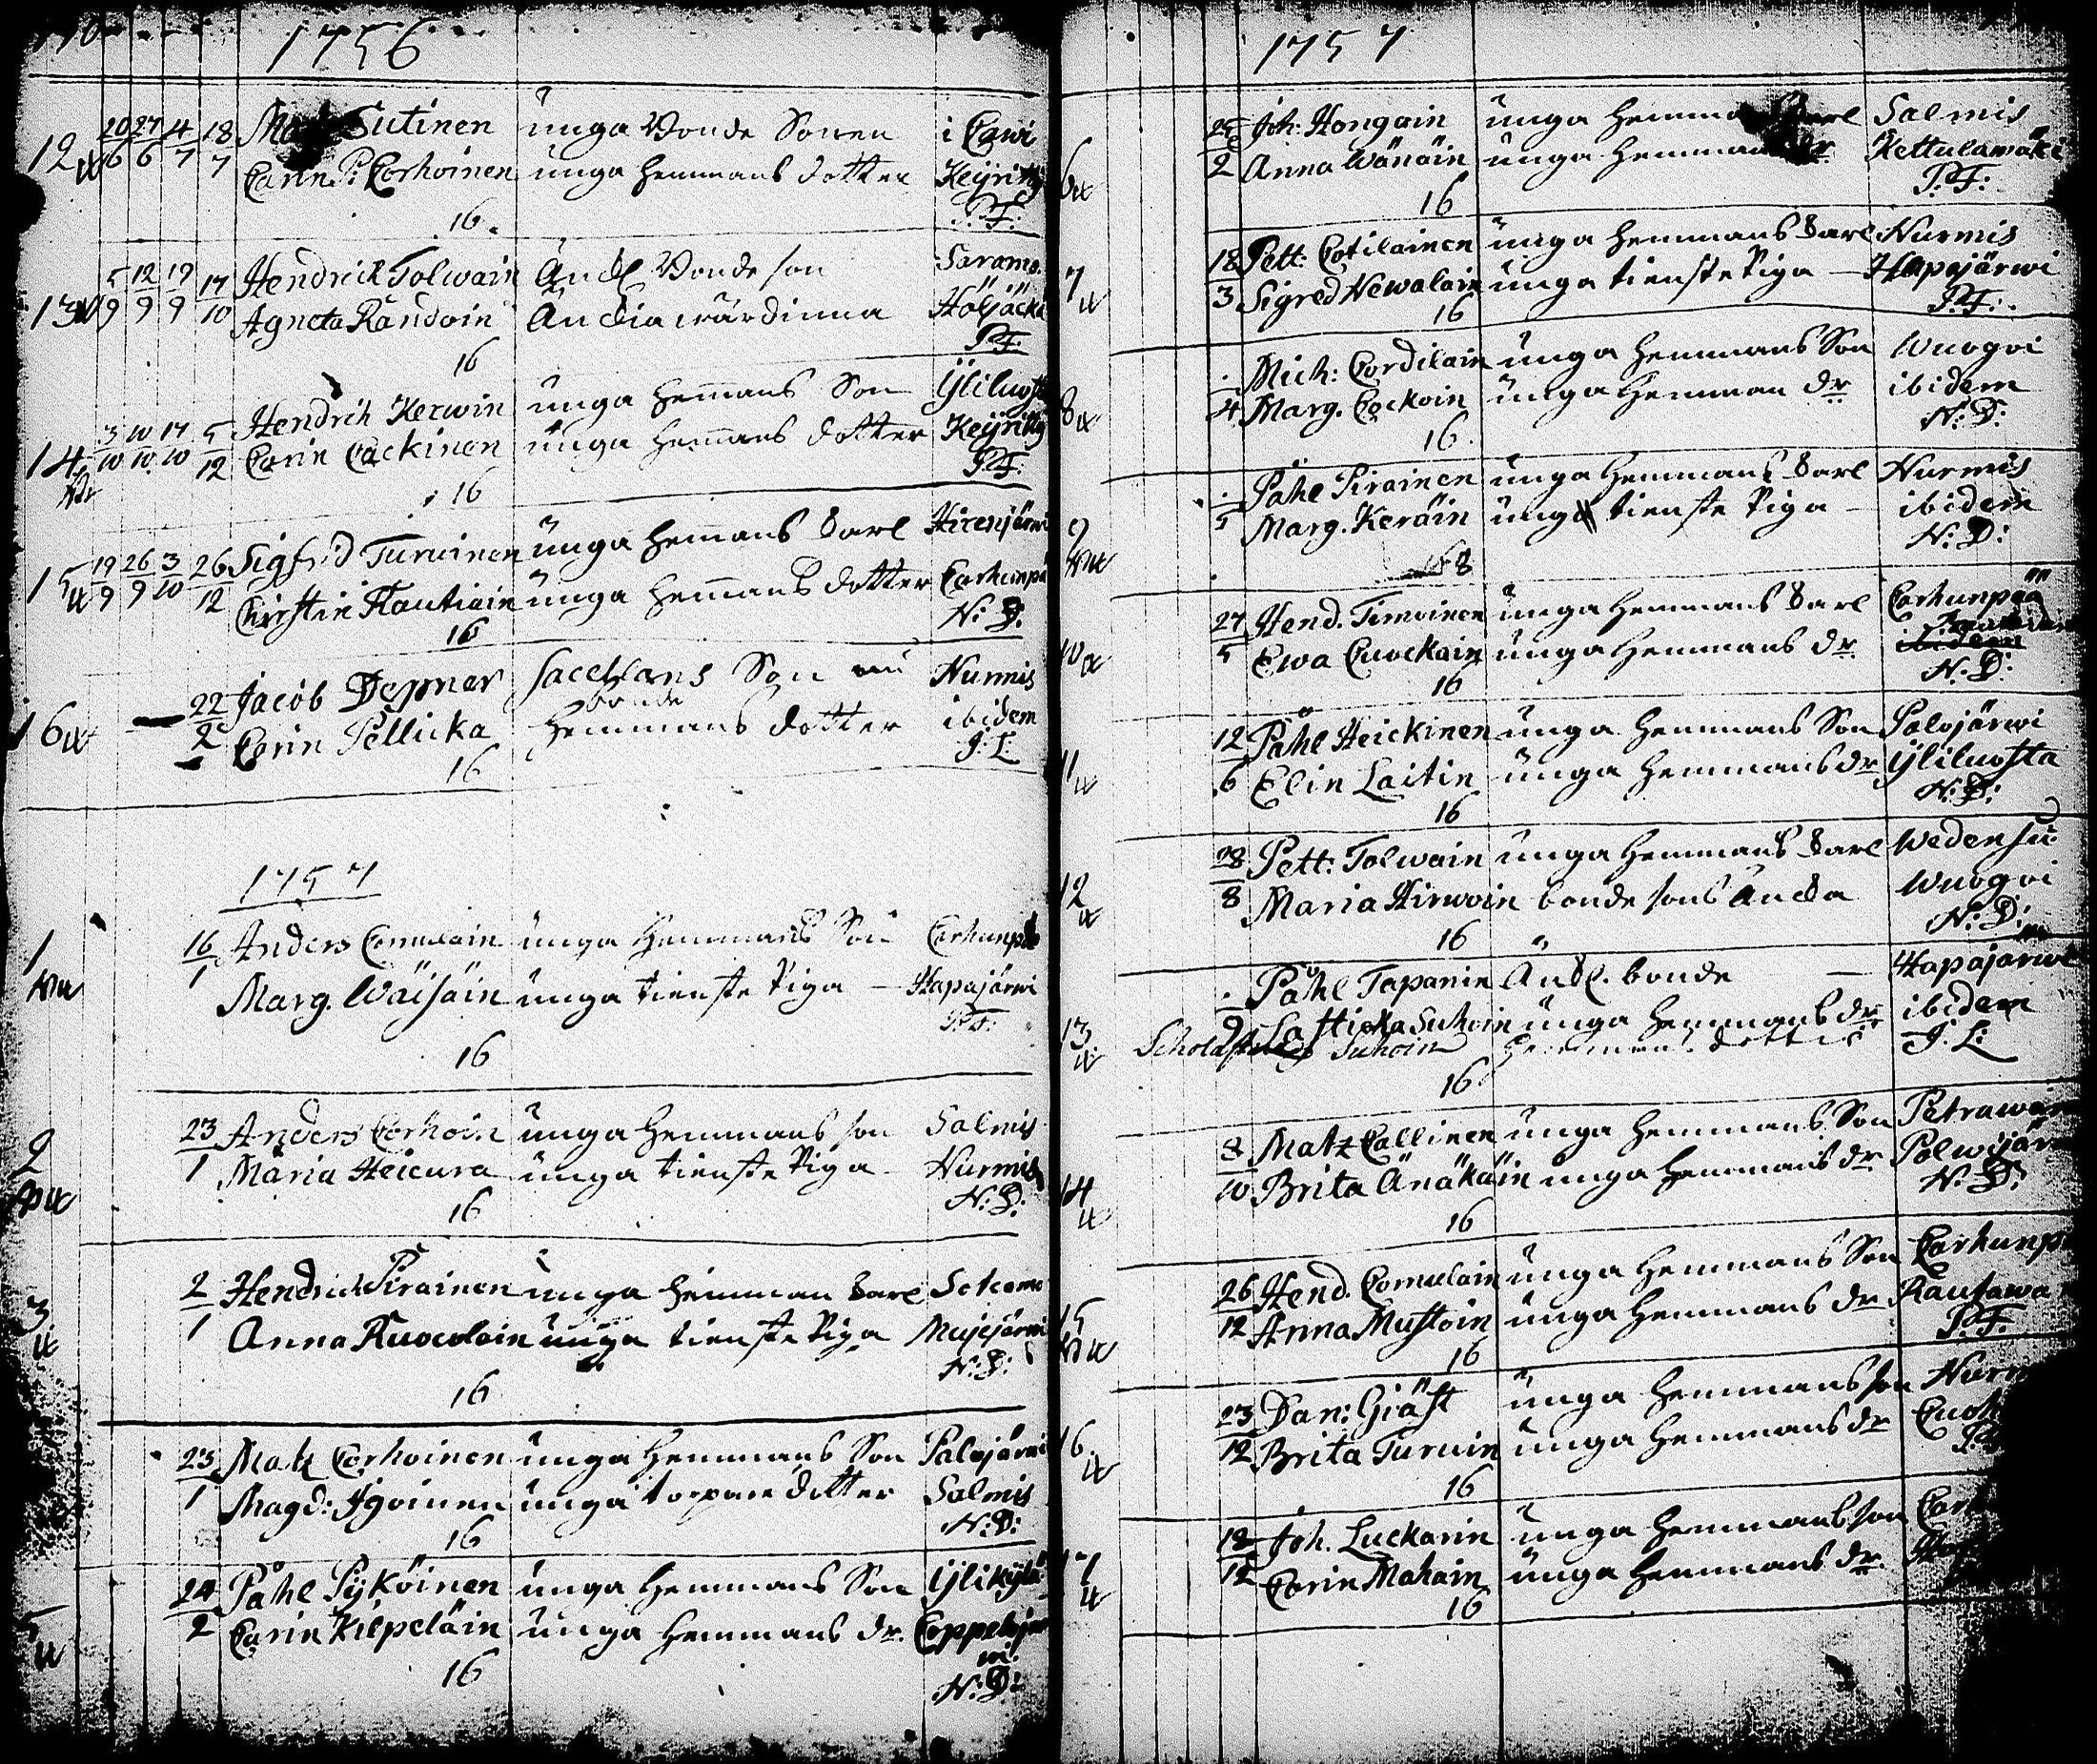 1756
12 20/6 27/6 4/7 18/7 Sutinen unga Bonde Sonen i Cawi
Carin P: Corhoinen unga hemmans dotter Keyritty
16. P.F:
13 5/9 12/9 19/9 17/10 Hendrich Tolwain Änckl Bonde son Saramo
Agneta Randoin Änckia wärdinna Höljäckä
16 P.F:
14 3/10 10/10 17/10 5/12 Hendrih Kerwin unga hemans Son Yliluost
Carin Cackinen unga hemans dotter Keyritty
16 P.F:
15 19/9 26/9 3/10 26/12 Sigfrid Turuinen unga hemans Karl Hirenjärwi
Kirstin Hautiain unga hemans dotter Corhunpä
16 N: D:
16 22/2 Jacob Depner Sacellans Son Nurmis
bonde
Carin Pellicka hemmans dotter ibidem
16 J: L
1757
1 16/1 Anders Comulain unga hemmans Son Corhunpä
Marg. Wäisäin unga tienste Piga Hapajärwi
16 P.F:
2 23/1 Anders Corhoin unga hemmans son Salmis
Maria Heicura unga tienste Piga Nurmis
16 N: D:
3 2/1 Hendrich Pirainen unga hemman Karl Sotcamo
Anna Ruocolain unga tienste Piga Mujejärwi
16 N: D:
23/1 Matz Corhoinen unga hemmans Son Palojärwi
Magd: Igoinen unga torpare dotter Salmis
16 N: D:
5 24/2 Påhl Pyköinen unga hemmans Son Ylikylä
Carin Kilpeläin unga hemmans dr. Coppelojär
wi.
16 N: D:
1757
6 25/2 Joh: Hongain unga hemma Karl Salmis
Anna Wänäin unga hemman dr Kettulamäki
16 P.F:
7 18/3 Pett: Cotilainen unga hemmans Karl Nurmis
Sigred Newalain unga tienste Piga Hapajärwi
16 P.F:
8 ./4 Mich: Cordilain unga hemmans Son Wuogoi
Marg. Cockoin unga hemman dr ibidem
16 N: D:
9 ./5 Påhl Pirainen unga hemmans Karl Nurmis
Marg. Keräin unga tienste Piga ibidem
168 N: D:
10 27/5 Hend. Timoinen unga hemmans Karl Corhunpää
Ewa Cuockain unga hemmans dr. ibidem
16 N: D:
11 12/6 Påhl Heickinen unga hemmans Son Palojärwi
Elin Laitin unga hemmans dr Yliluosta
16 N: D:
12 28/8 Pett: Tolwain unga hemmans Karl Wedensu:
Maria Hirwoin bonde sons Äncka Wuogoi
16 N: D:
13 ./9 Påhl Tapanin Änckl. bonde Hapajärwi
Suhoin unga hemmans dr ibidem
Scholast: Suhoin hemmans dotter J: L:
16
14 8/10 Matz Callinen unga hemmans Son Petrawar
Brita Änäkäin unga hemmans dr Polwijär
16 N: D:
15 26/12 Hend. Comulain unga hemmans Son Corhunp
Anna Mustoin unga hemmans dr Rautawa
16 P.F:
16. 23/12 Dan: Giäst unga hemmans son Nurm
Brita Turuin unga hemmans dr Cuok
16
17 12/12 Joh. Luckarin unga hemmans son Cor
Carin Mahain unga hemmans dr.
16